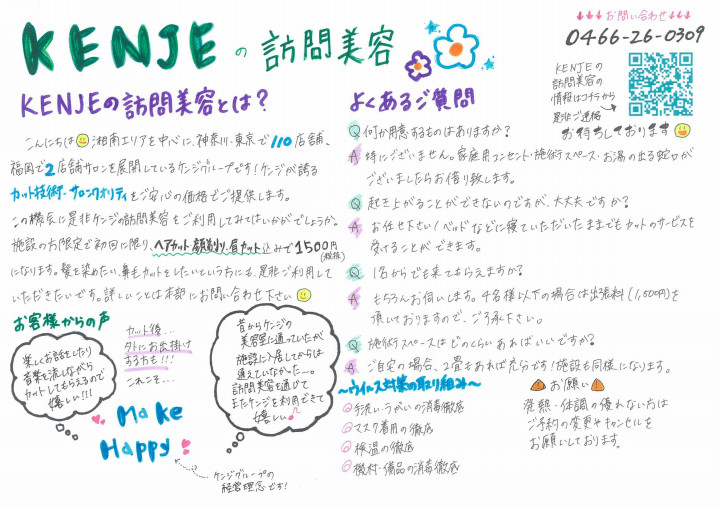 KENJEの訪問美容
↓↓↓お問い合わせ↓↓↓
0466-26-0309
KENJEの
訪問美容の
情報はコチラから
是非ご連絡
お待ちしております
KENJEの訪問美容とは？
こんにちは 湘南エリアを中心に、神奈川・東京で110店舗、
福岡で2店舗サロンを展開しているケンジグループです！ケンジが誇る
カット技術・サロンクオリティをご安心の価格でご提供します。
この機会に是非ケンジの訪問美容をご利用してみてはいかがでしょうか。
施設の方限定で初回に限り、ヘアカット・顔剃り、眉カット込みで1500円
(税抜)
になります。髪を染めたい、鼻毛カットをしたいという方にも、是非ご利用して
いただきたいです。詳しいことは本部にお問い合わせ下さい
お客様からの声
楽しくお話をしたり
音楽を流しながら
カットしてもらえるので
嬉しい!!!
カット後...
夕トにお出掛け
するする!!!
これこそ...
Make
Happy
ケンジグループの
経営理念です！
昔からケンジの
美容室に通っていたが
施設に入居してからは
通えていなかった...。
訪問美容を通じて
またケンジを利用できて
嬉しい♪
よくあるご質問
Q 何か用意するものはありますか？
A 特にございません。家庭用コンセント・施術スペース・お湯の出る蛇口が
ございましたらお借り致します。
Q 起き上がることができないのですが、大丈夫ですか？
A お任せ下さい！ベッドなどに寝ていただいたままでもカットのサービスを
受けることができます。
Q 1名からでも来てもらえますか？
A もちろんお伺いします。4名様以下の場合は出張料(1,500円)を
頂いておりますので、ご了承下さい。
Q 施術スペースはどのくらいあればいいですか？
A ご自宅の場合、2畳もあれば充分です！施設も同様になります。
～ウイルス対策の取り組み～
◎手洗い・うがいの消毒徹底
◎マスク着用の徹底
◎検温の徹底
◎機材・備品の消毒徹底
お願い
発熱・体調の優れない方は
ご予約の変更やキャンセルを
お願いしております。